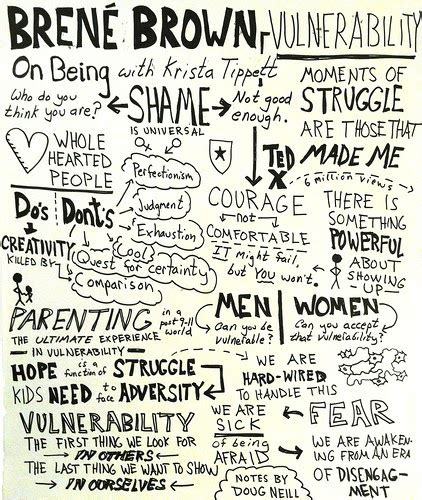 BRENÉ BROWN, VULNERABILITY
On Being with Krista Tippett
Who do you
think you are?
SHAME
IS UNIVERSAL
Not good
enough.
MOMENTS OF
STRUGGLE
ARE THOSE THAT
MADE ME
WHOLE
HEARTED
PEOPLE
TED
X
6 million views
Do's
Dont's
Perfectionism
Judgment
Exhaustion
Cool
Quest for certainty
Comparison
CREATIVITY
KILLED BY
COURAGE
not
COMFORTABLE
IT Might fail,
but YOU won't.
THERE IS
SOMETHING
POWERFUL
ABOUT
SHOWING
UP
PARENTING
in a
post 9-11
world
THE ULTIMATE EXPERIENCE
IN VULNERABILITY
MEN
Can you be
vulnerable?
WOMEN
Can you accept
that vulnerability?
HOPE is a function of STRUGGLE
KIDS NEED to face ADVERSITY
WE ARE
HARD-WIRED
TO HANDLE THIS
VULNERABILITY
THE FIRST THING WE LOOK FOR
IN OTHERS
THE LAST THING WE WANT TO SHOW
IN OURSELVES
WE ARE
SICK
of being
AFRAID
FEAR
WE ARE AWAKEN-
ING FROM AN ERA
OF DISENGAG-
MENT
NOTES BY
DOUG NEILL